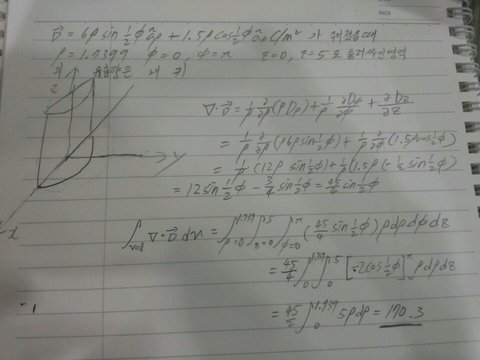 D⃗ = 6ρ sin ½φ âρ + 1.5ρ cos ½φ âφ C/m² 가 주어졌을때
ρ = 1.7399 φ=0, φ=π z=0, z=5 로 둘러싸인영역
의
z
y
x
∇·D⃗ = 1/ρ ∂/∂ρ (ρDρ) + 1/ρ ∂Dφ/∂φ + ∂Dz/∂z
= 1/ρ ∂/∂ρ (ρ6ρ sin ½φ) + 1/ρ ∂/∂φ (1.5ρ cos ½φ)
= 1/ρ (12ρ sin ½φ) + 1/ρ (1.5ρ (-½ sin ½φ)
= 12 sin ½φ - ¾ sin ½φ = 45/4 sin ½φ
∫vol ∇·D⃗ dv = ∫ρ=0^1.739 ∫z=0^5 ∫φ=0^π (45/4 sin ½φ) ρdρdφdz
= 45/4 ∫0^1.739 ∫0^5 [-2cos ½φ]0^π ρdρdz
= 45/2 ∫0^1.739 5ρdρ = 170.3